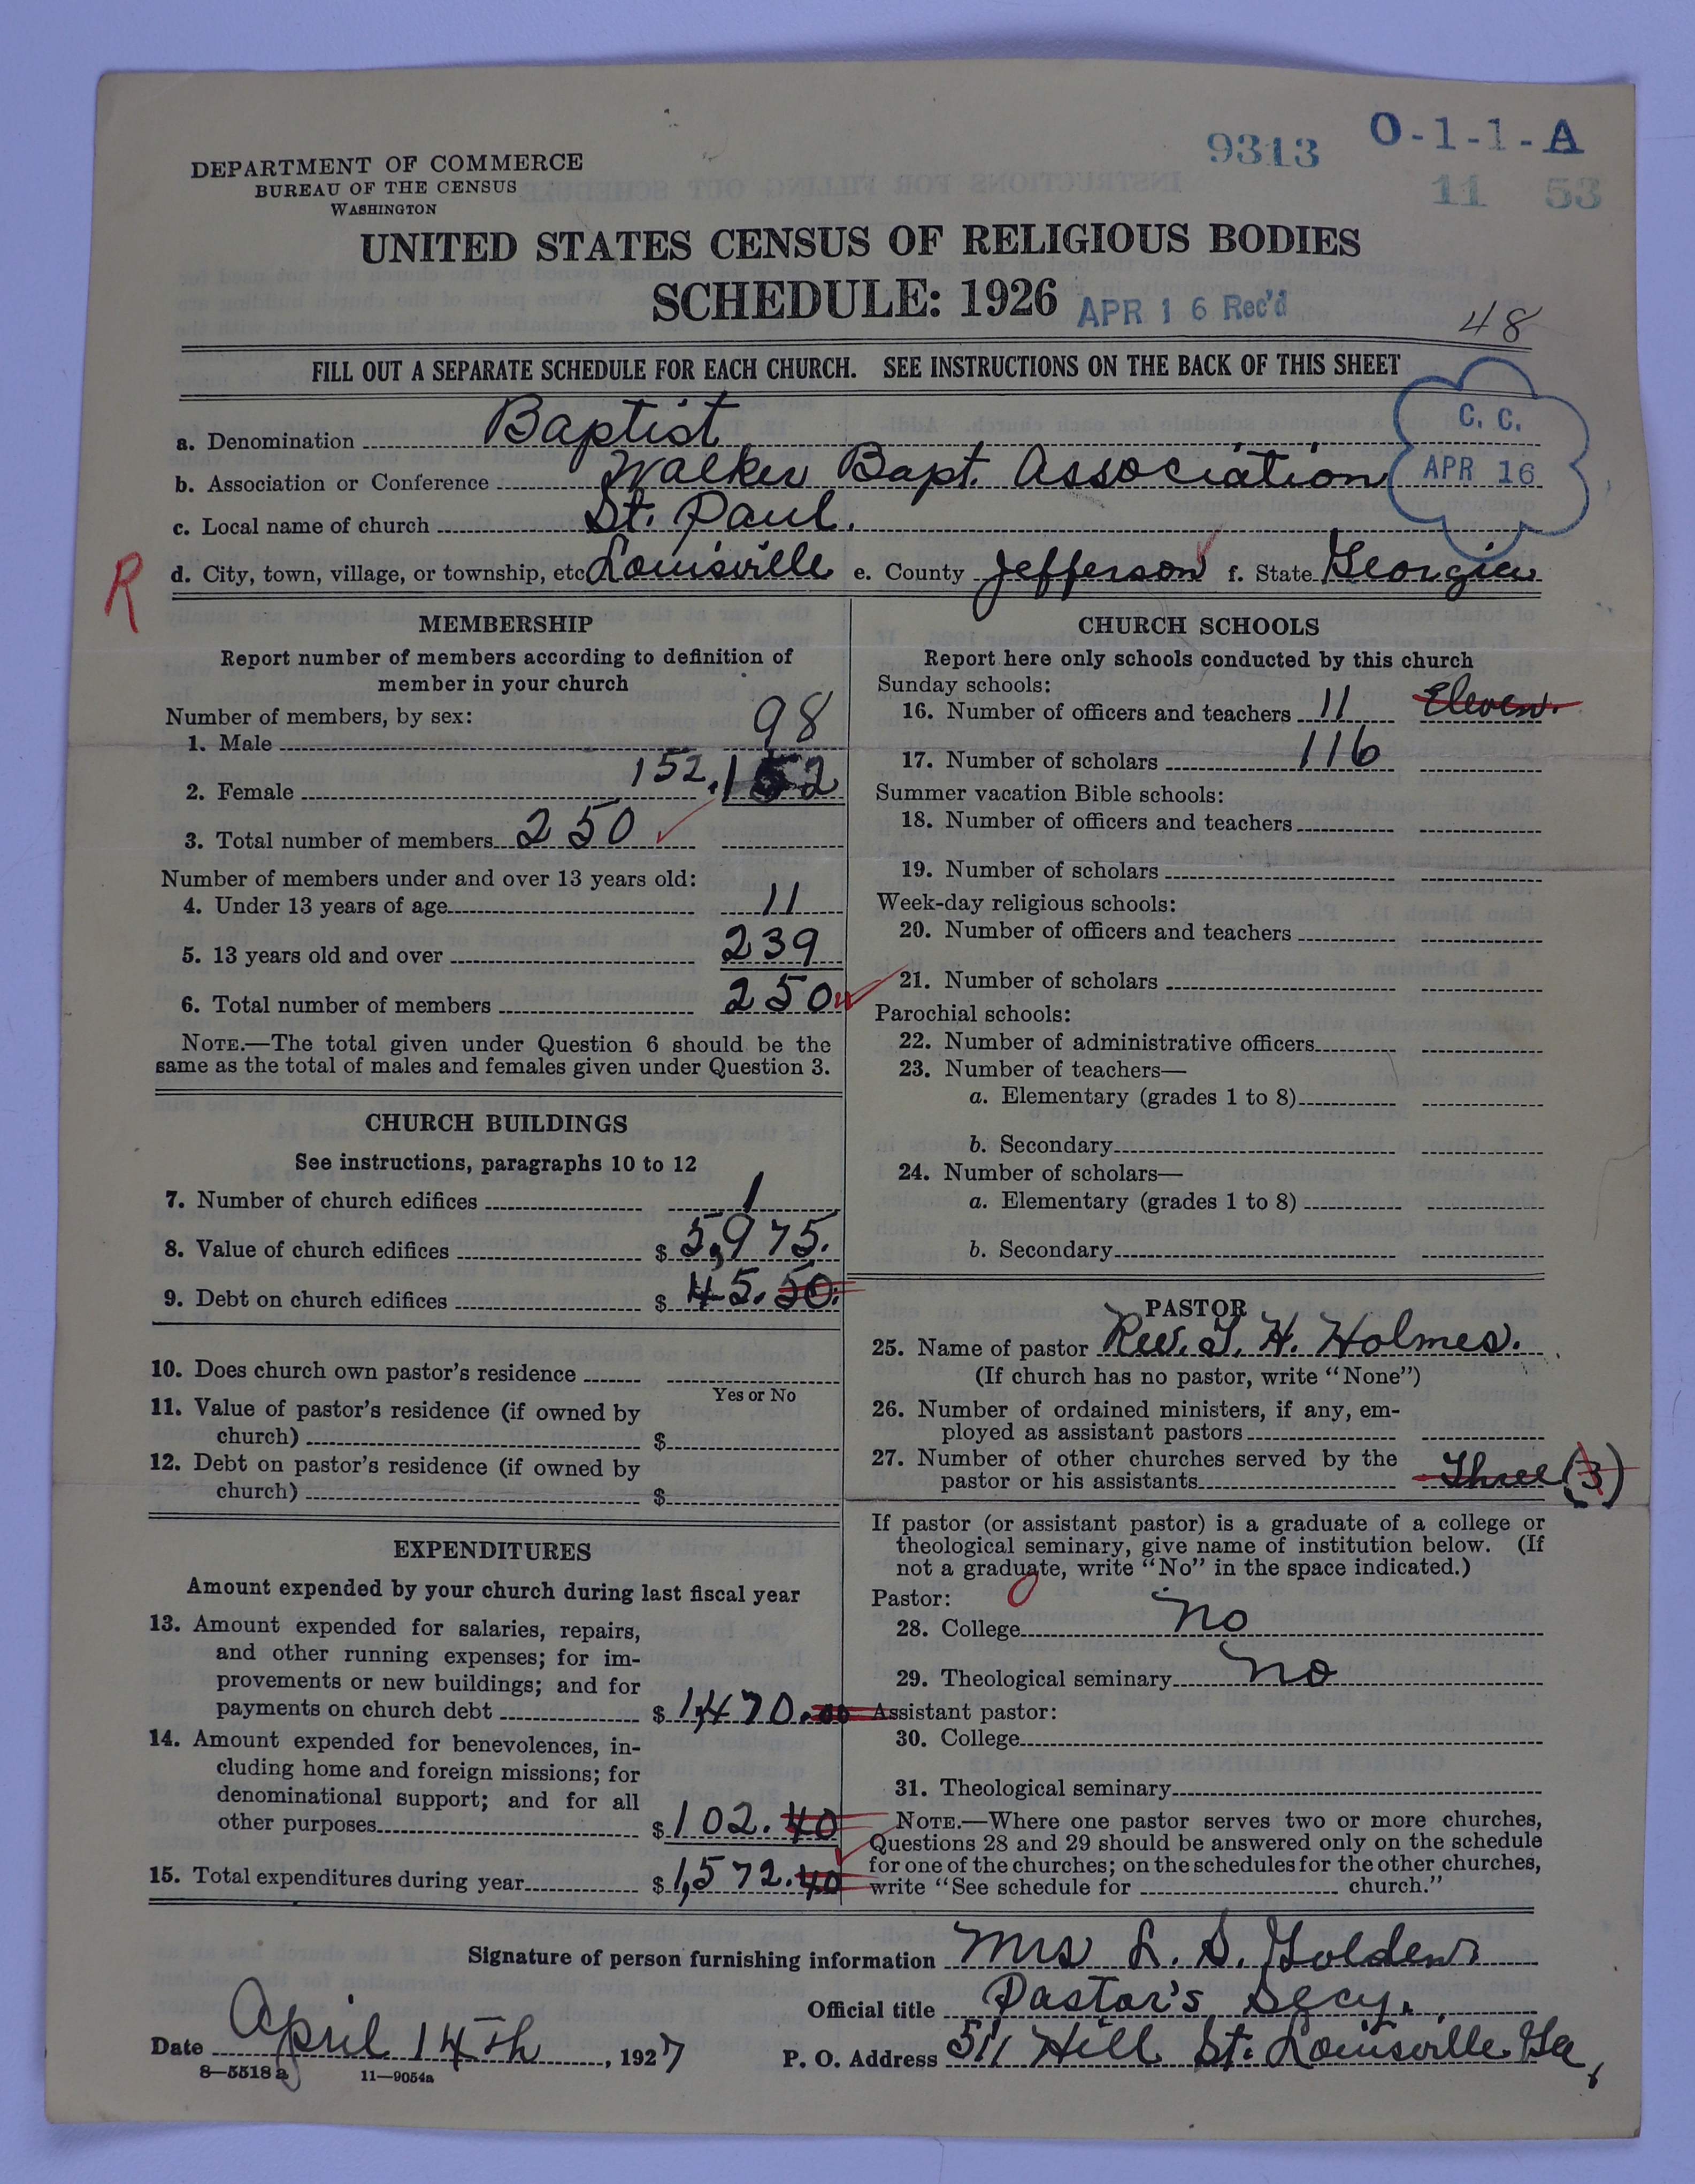 9313 O-1-1-A
11 53
DEPARTMENT OF COMMERCE
BUREAU OF THE CENSUS
WASHINGTON
UNITED STATES CENSUS OF RELIGIOUS BODIES
SCHEDULE: 1926 APR 16 Rec'd
48
FILL OUT A SEPARATE SCHEDULE FOR EACH CHURCH. SEE INSTRUCTIONS ON THE BACK OF THIS SHEET
C. C.
APR 16
a. Denomination Baptist
b. Association or Conference Walker Bapt. Association
c. Local name of church St. Paul.
R
d. City, town, village, or township, etc Louisville e. County Jefferson f. State Georgia
MEMBERSHIP
Report number of members according to definition of
member in your church
Number of members, by sex:
1. Male 98
2. Female 152. 152
3. Total number of members 250
Number of members under and over 13 years old:
4. Under 13 years of age 11
5. 13 years old and over 239
6. Total number of members 250
NOTE.—The total given under Question 6 should be the
same as the total of males and females given under Question 3.
CHURCH BUILDINGS
See instructions, paragraphs 10 to 12
7. Number of church edifices 1
8. Value of church edifices $ 5,975.
9. Debt on church edifices $ 45.50.
10. Does church own pastor's residence
Yes or No
11. Value of pastor's residence (if owned by
church) $
12. Debt on pastor's residence (if owned by
church) $
EXPENDITURES
Amount expended by your church during last fiscal year
13. Amount expended for salaries, repairs,
and other running expenses; for im-
provements or new buildings; and for
payments on church debt $ 1,470.00
14. Amount expended for benevolences, in-
cluding home and foreign missions; for
denominational support; and for all
other purposes $ 102.40
15. Total expenditures during year $ 1,572.40
CHURCH SCHOOLS
Report here only schools conducted by this church
Sunday schools:
16. Number of officers and teachers 11 Eleven.
17. Number of scholars 116
Summer vacation Bible schools:
18. Number of officers and teachers
19. Number of scholars
Week-day religious schools:
20. Number of officers and teachers
21. Number of scholars
Parochial schools:
22. Number of administrative officers
23. Number of teachers—
a. Elementary (grades 1 to 8)
b. Secondary
24. Number of scholars—
a. Elementary (grades 1 to 8)
b. Secondary
PASTOR
25. Name of pastor Rev. H. Holmes.
(If church has no pastor, write "None")
26. Number of ordained ministers, if any, em-
ployed as assistant pastors
27. Number of other churches served by the
pastor or his assistants Three (3)
If pastor (or assistant pastor) is a graduate of a college or
theological seminary, give name of institution below. (If
not a graduate, write "No" in the space indicated.)
Pastor: 0
28. College No
29. Theological seminary No
Assistant pastor:
30. College
31. Theological seminary
NOTE.—Where one pastor serves two or more churches,
Questions 28 and 29 should be answered only on the schedule
for one of the churches; on the schedules for the other churches,
write "See schedule for church."
Signature of person furnishing information Mrs L. S. Golden.
Official title Pastor's Secy.
Date April 14th, 1927 P. O. Address 511 Hill St. Louisville Ga,
8—5518 a 11—9054a